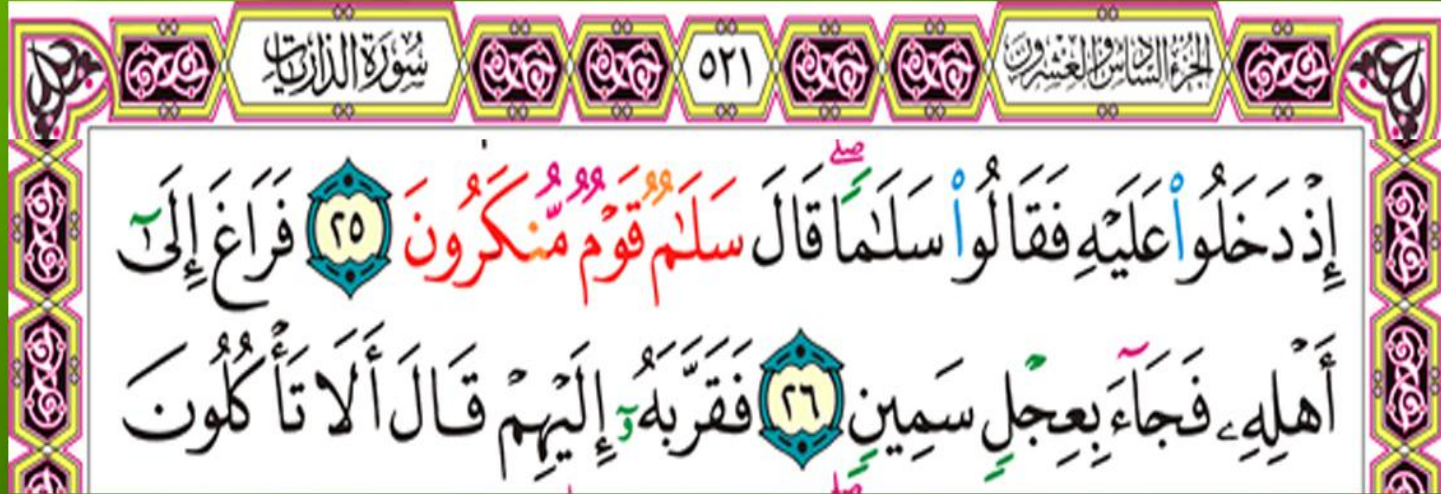 الجزء السادس والعشرون ٥٢١ سورة الذاريات
إِذْ دَخَلُوا۟ عَلَيْهِ فَقَالُوا۟ سَلَـٰمًا ۖ قَالَ سَلَـٰمٌ قَوْمٌ مُّنكَرُونَ ٢٥ فَرَاغَ إِلَىٰٓ
أَهْلِهِۦ فَجَآءَ بِعِجْلٍ سَمِينٍ ٢٦ فَقَرَّبَهُۥٓ إِلَيْهِمْ قَالَ أَلَا تَأْكُلُونَ